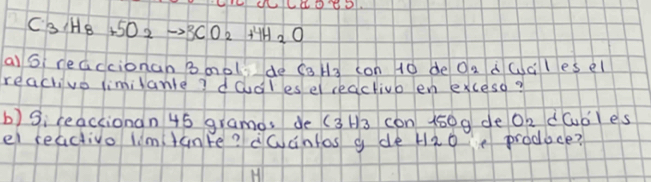 C3H8 +5O2 →3CO2 +4H2O
a) Si reaccionan 3 mol de C3H3 con 10 de O2 ¿Cuál es el
reactivo limitante? ¿Cuál es el reactivo en exceso?
b) Si reaccionan 45 gramos de C3H3 con 150g de O2 ¿Cuál es
el reactivo limitante? ¿Cuántos g de H2O se produce?